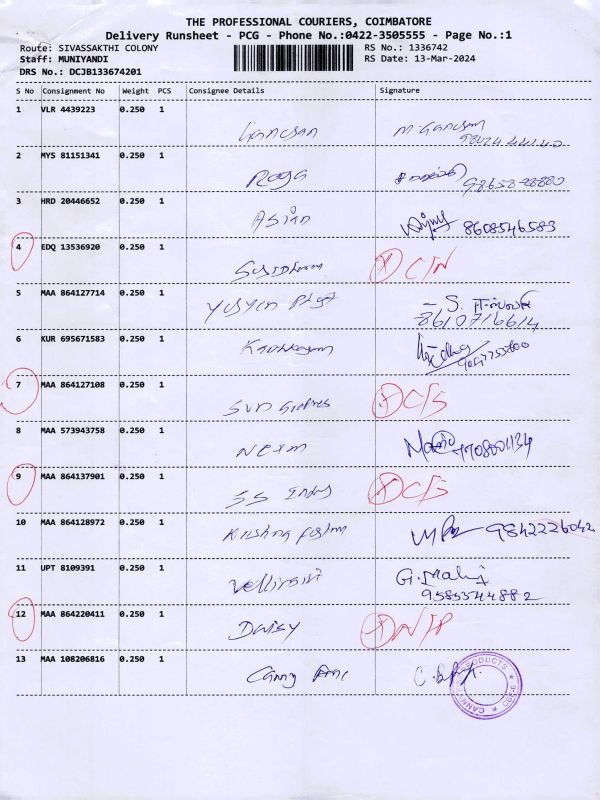 THE PROFESSIONAL COURIERS, COIMBATORE
Delivery Runsheet - PCG - Phone No.:0422-3505555 - Page No.:1
Route: SIVASSAKTHI COLONY RS No.: 1336742
Staff: MUNIYANDI RS Date: 13-Mar-2024
DRS No.: DCJB133674201
S No Consignment No Weight PCS Consignee Details Signature
1 VLR 4439223 0.250 1
Ganesan M. Ganesan
2 MYS 81151341 0.250 1
Roga
3 HRD 20446652 0.250 1
Asian 8608546583
4 EDQ 13536920 0.250 1
C/N
5 MAA 864127714 0.250 1
S.
8610716614
6 KUR 695671583 0.250 1
7 MAA 864127108 0.250 1
C/S
8 MAA 573943758 0.250 1
7708001134
9 MAA 864137901 0.250 1
SS Indus C/S
10 MAA 864128972 0.250 1
Krishna 9842226042
11 UPT 8109391 0.250 1
G. Malij
9585344882
12 MAA 864220411 0.250 1
Daisy
13 MAA 108206816 0.250 1
Canny
PRODUCTS